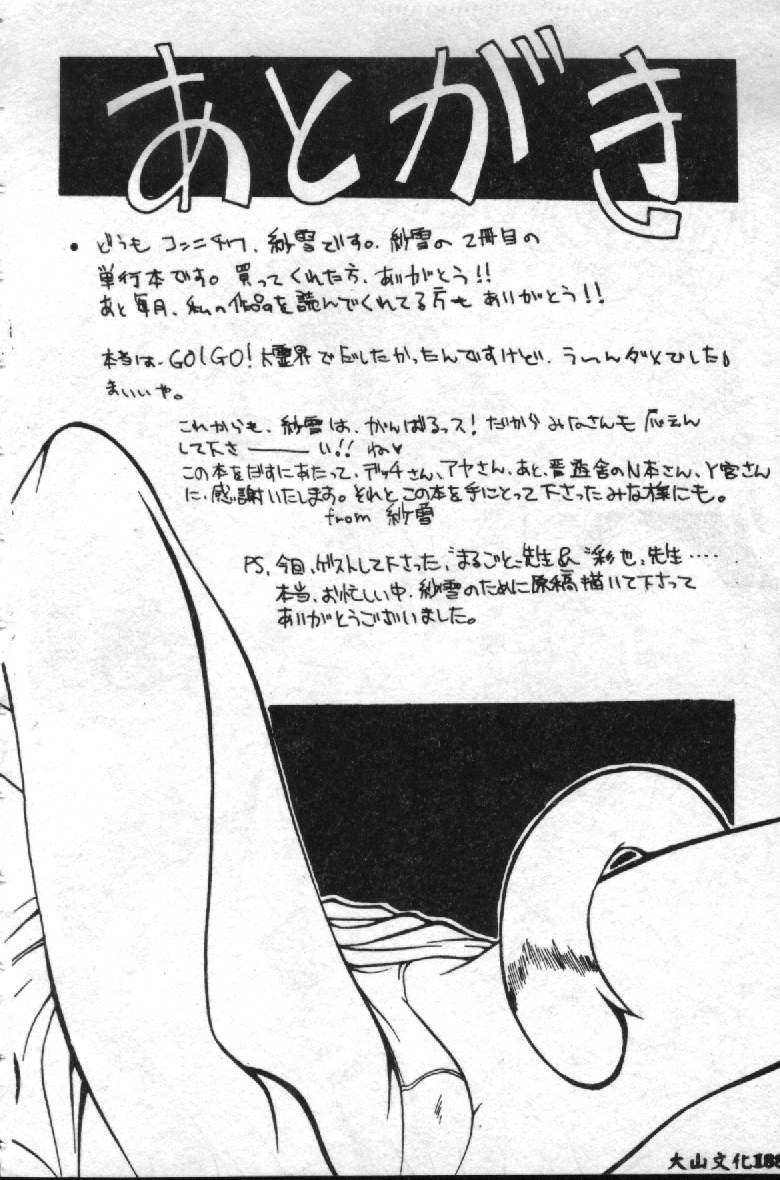 あとがき
• どうも コンニチワ、紗雪です。紗雪の 2冊目の
単行本です。買ってくれた方、ありがとう!!
あと毎月、私の作品を読んでくれてる方も ありがとう!!
本当は、GO!GO!大霊界でだしたかったんですけど、う〜んダメでした。
まいいや。
これからも、紗雪は、がんばるっス!だから みなさんも 応えん
して下さ―――い!! ね♥
この本をだすにあたって、デッチさん、アヤさん、あと、晋遊舎のN本さん、Y宮さん
に、感謝いたします。それとこの本を手にとって下さったみな様にも。
from 紗雪
PS、今回、ゲストして下さった、“まるごと”先生&“彩也”先生・・・・
本当、お忙しい中、紗雪のために原稿描いて下さって
ありがとうございました。
大山文化